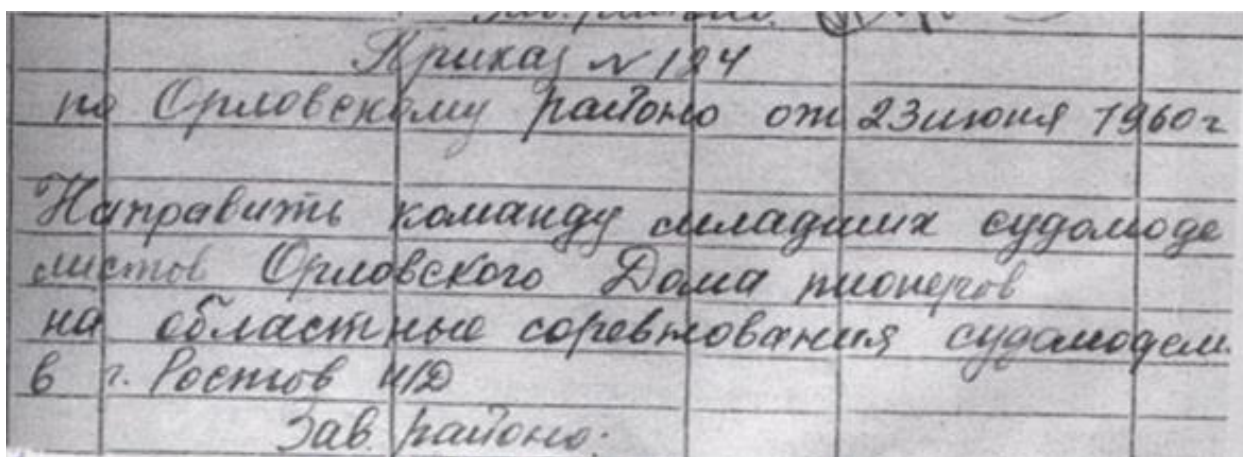 Зав. районо.
Приказ № 184
по Орловскому районо от 23 июня 1960 г
Направить команду младших судомоде
листов Орловского Дома пионеров
на областные соревнования судомодел.
в г. Ростов н/Д
Зав. районо.